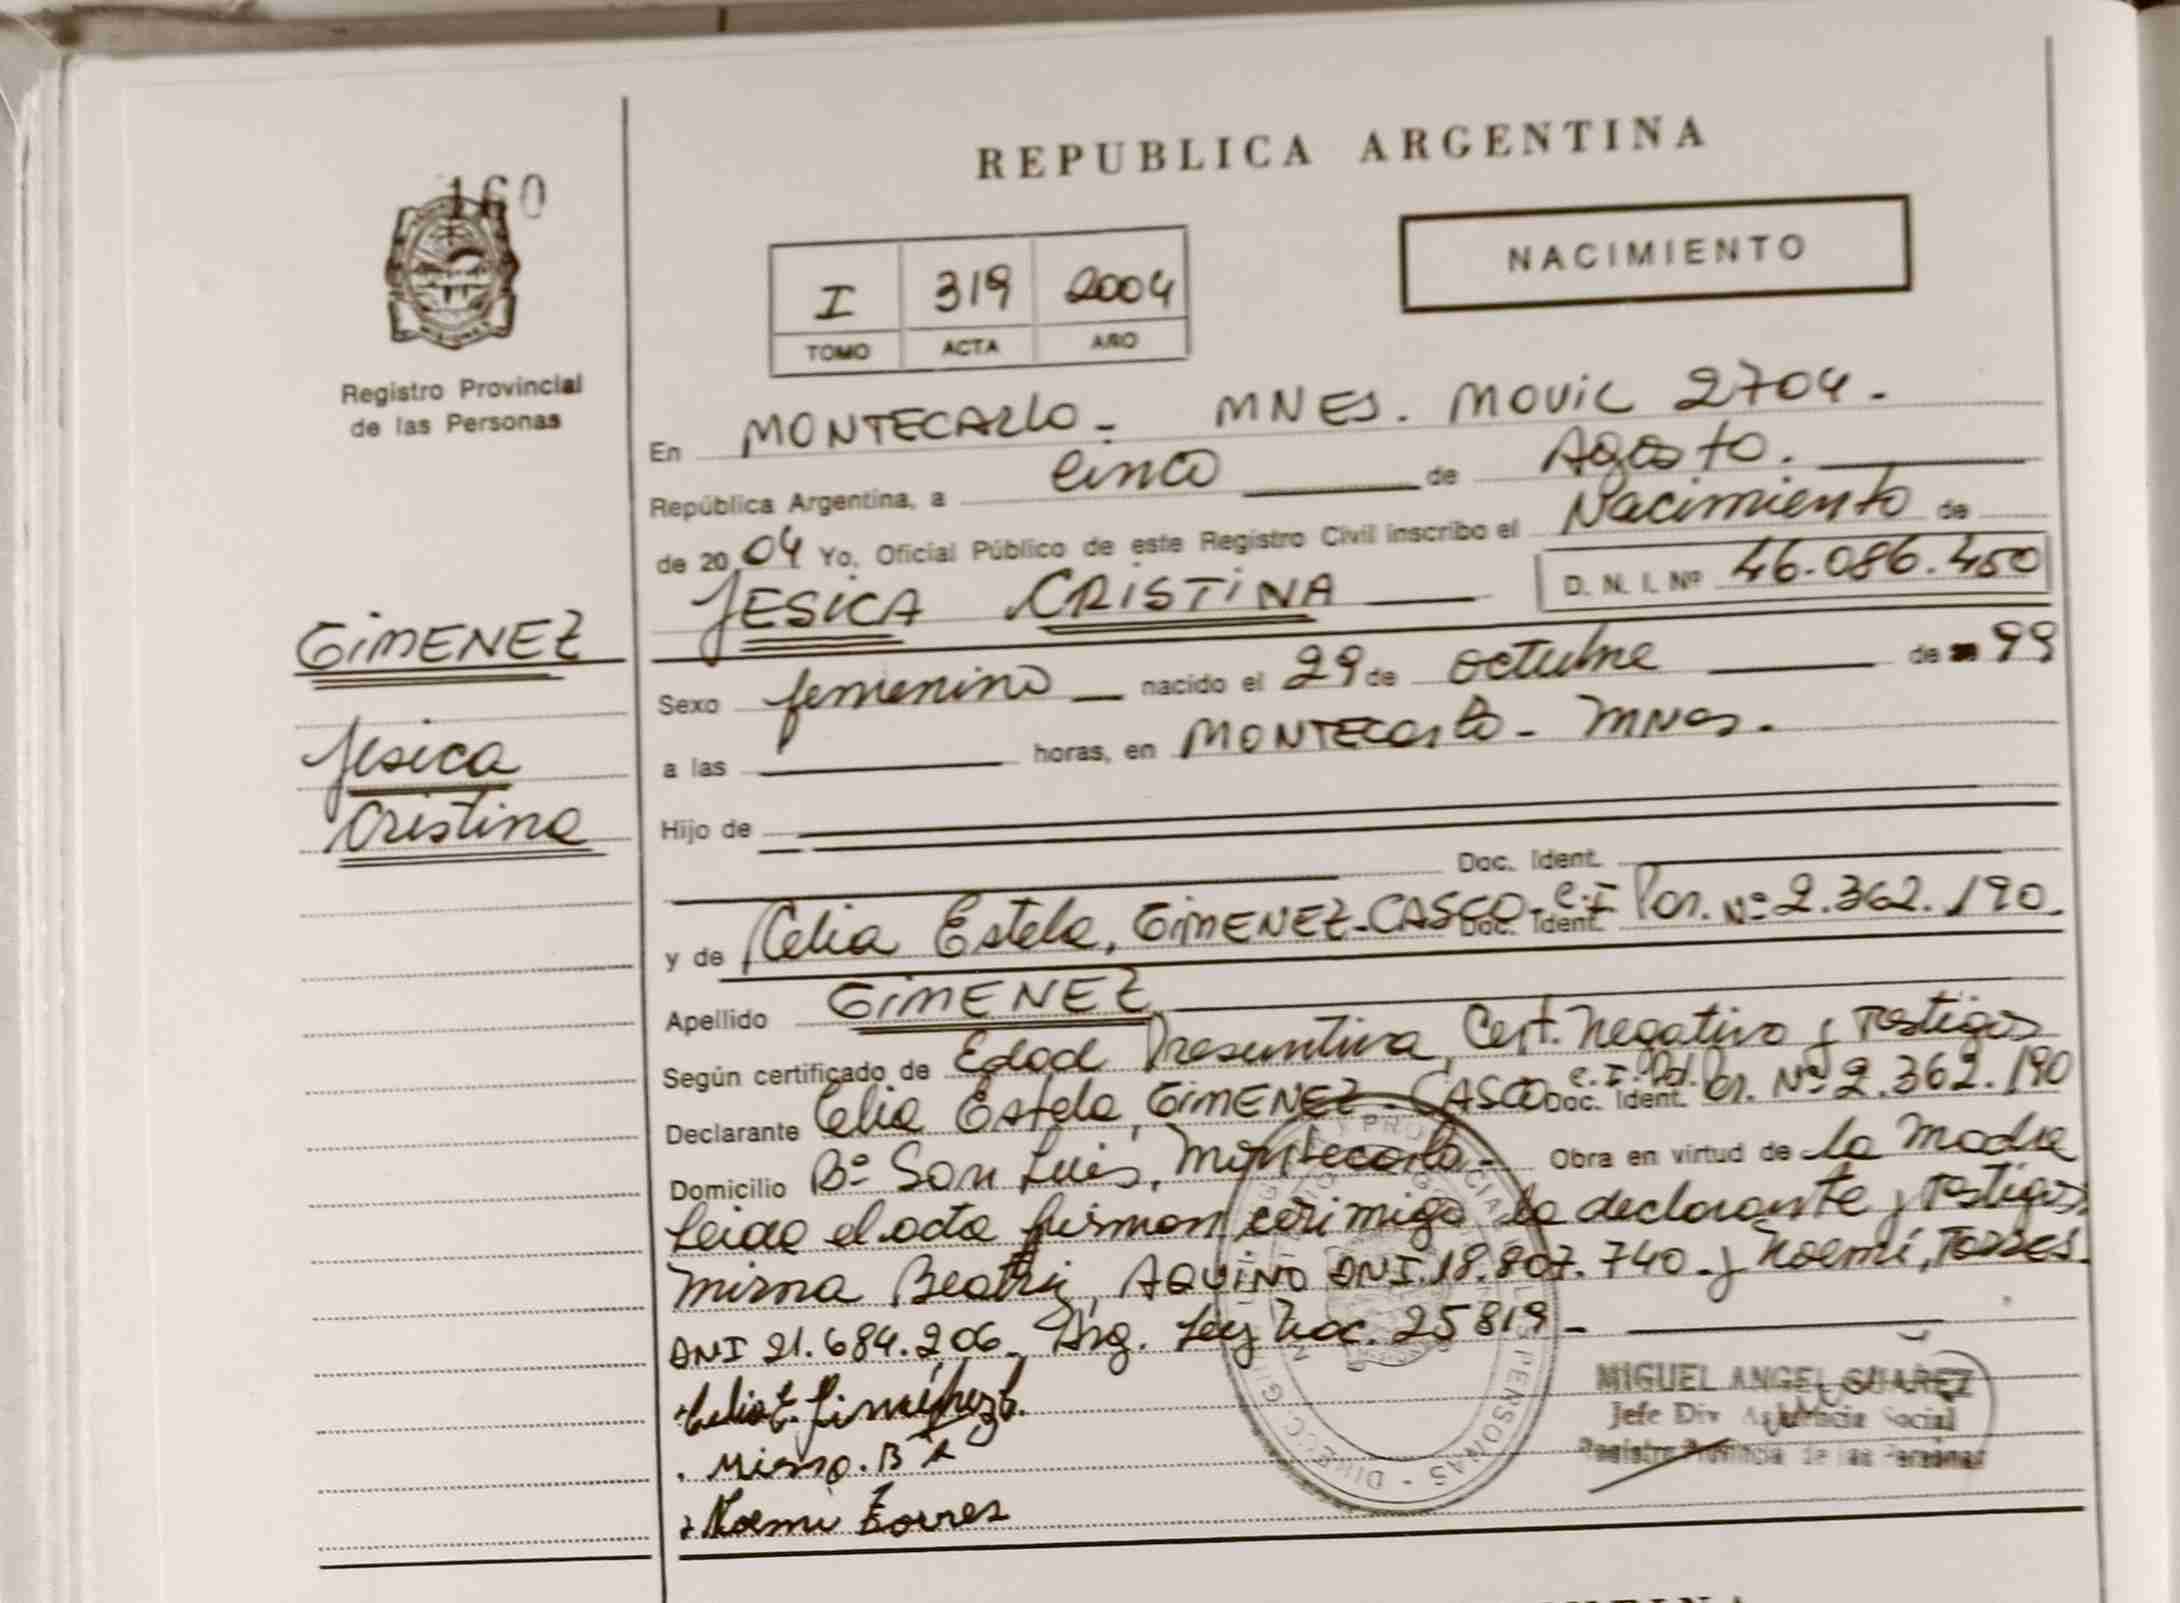 160
Registro Provincial
de las Personas
REPUBLICA ARGENTINA
NACIMIENTO
I 319 2004
TOMO ACTA AÑO
En MONTECARLO - MNES. MOVIL 2704.
República Argentina, a cinco de Agosto.
de 2004 Yo, Oficial Público de este Registro Civil inscribo el Nacimiento de
JESICA CRISTINA D. N. I. Nº 46.086.450
GIMENEZ
Jesica
Cristina
Sexo femenino nacido el 29 de octubre de 99
a las horas, en MONTECARLO - MNES.
Hijo de
Doc. Ident.
y de Celia Estela, GIMENEZ-CASCO - C.I Doc. Ident. Par. Nº 2.362.190.
Apellido GIMENEZ
Según certificado de Edad Presuntiva, Cert. Negativo y Testigos
Declarante Celia Estela, GIMENEZ-CASCO Doc. Ident. C.I. Pol. Par. Nº 2.362.190
Domicilio Bº San Luis, Montecarlo - Obra en virtud de La Madre
Leida el acta firman conmigo la declarante y Testigos
Mirna Beatriz, AQUINO DNI.18.807.740 - y Noemí, TORRES.
DNI 21.684.206 - Arg. Ley Nac. 25819 -
Celia E. Giménez C.
Mirna. B A
Noemi Torres
MIGUEL ANGEL SUAREZ
Jefe Div Asistencia Social
Registro Provincial de las Personas